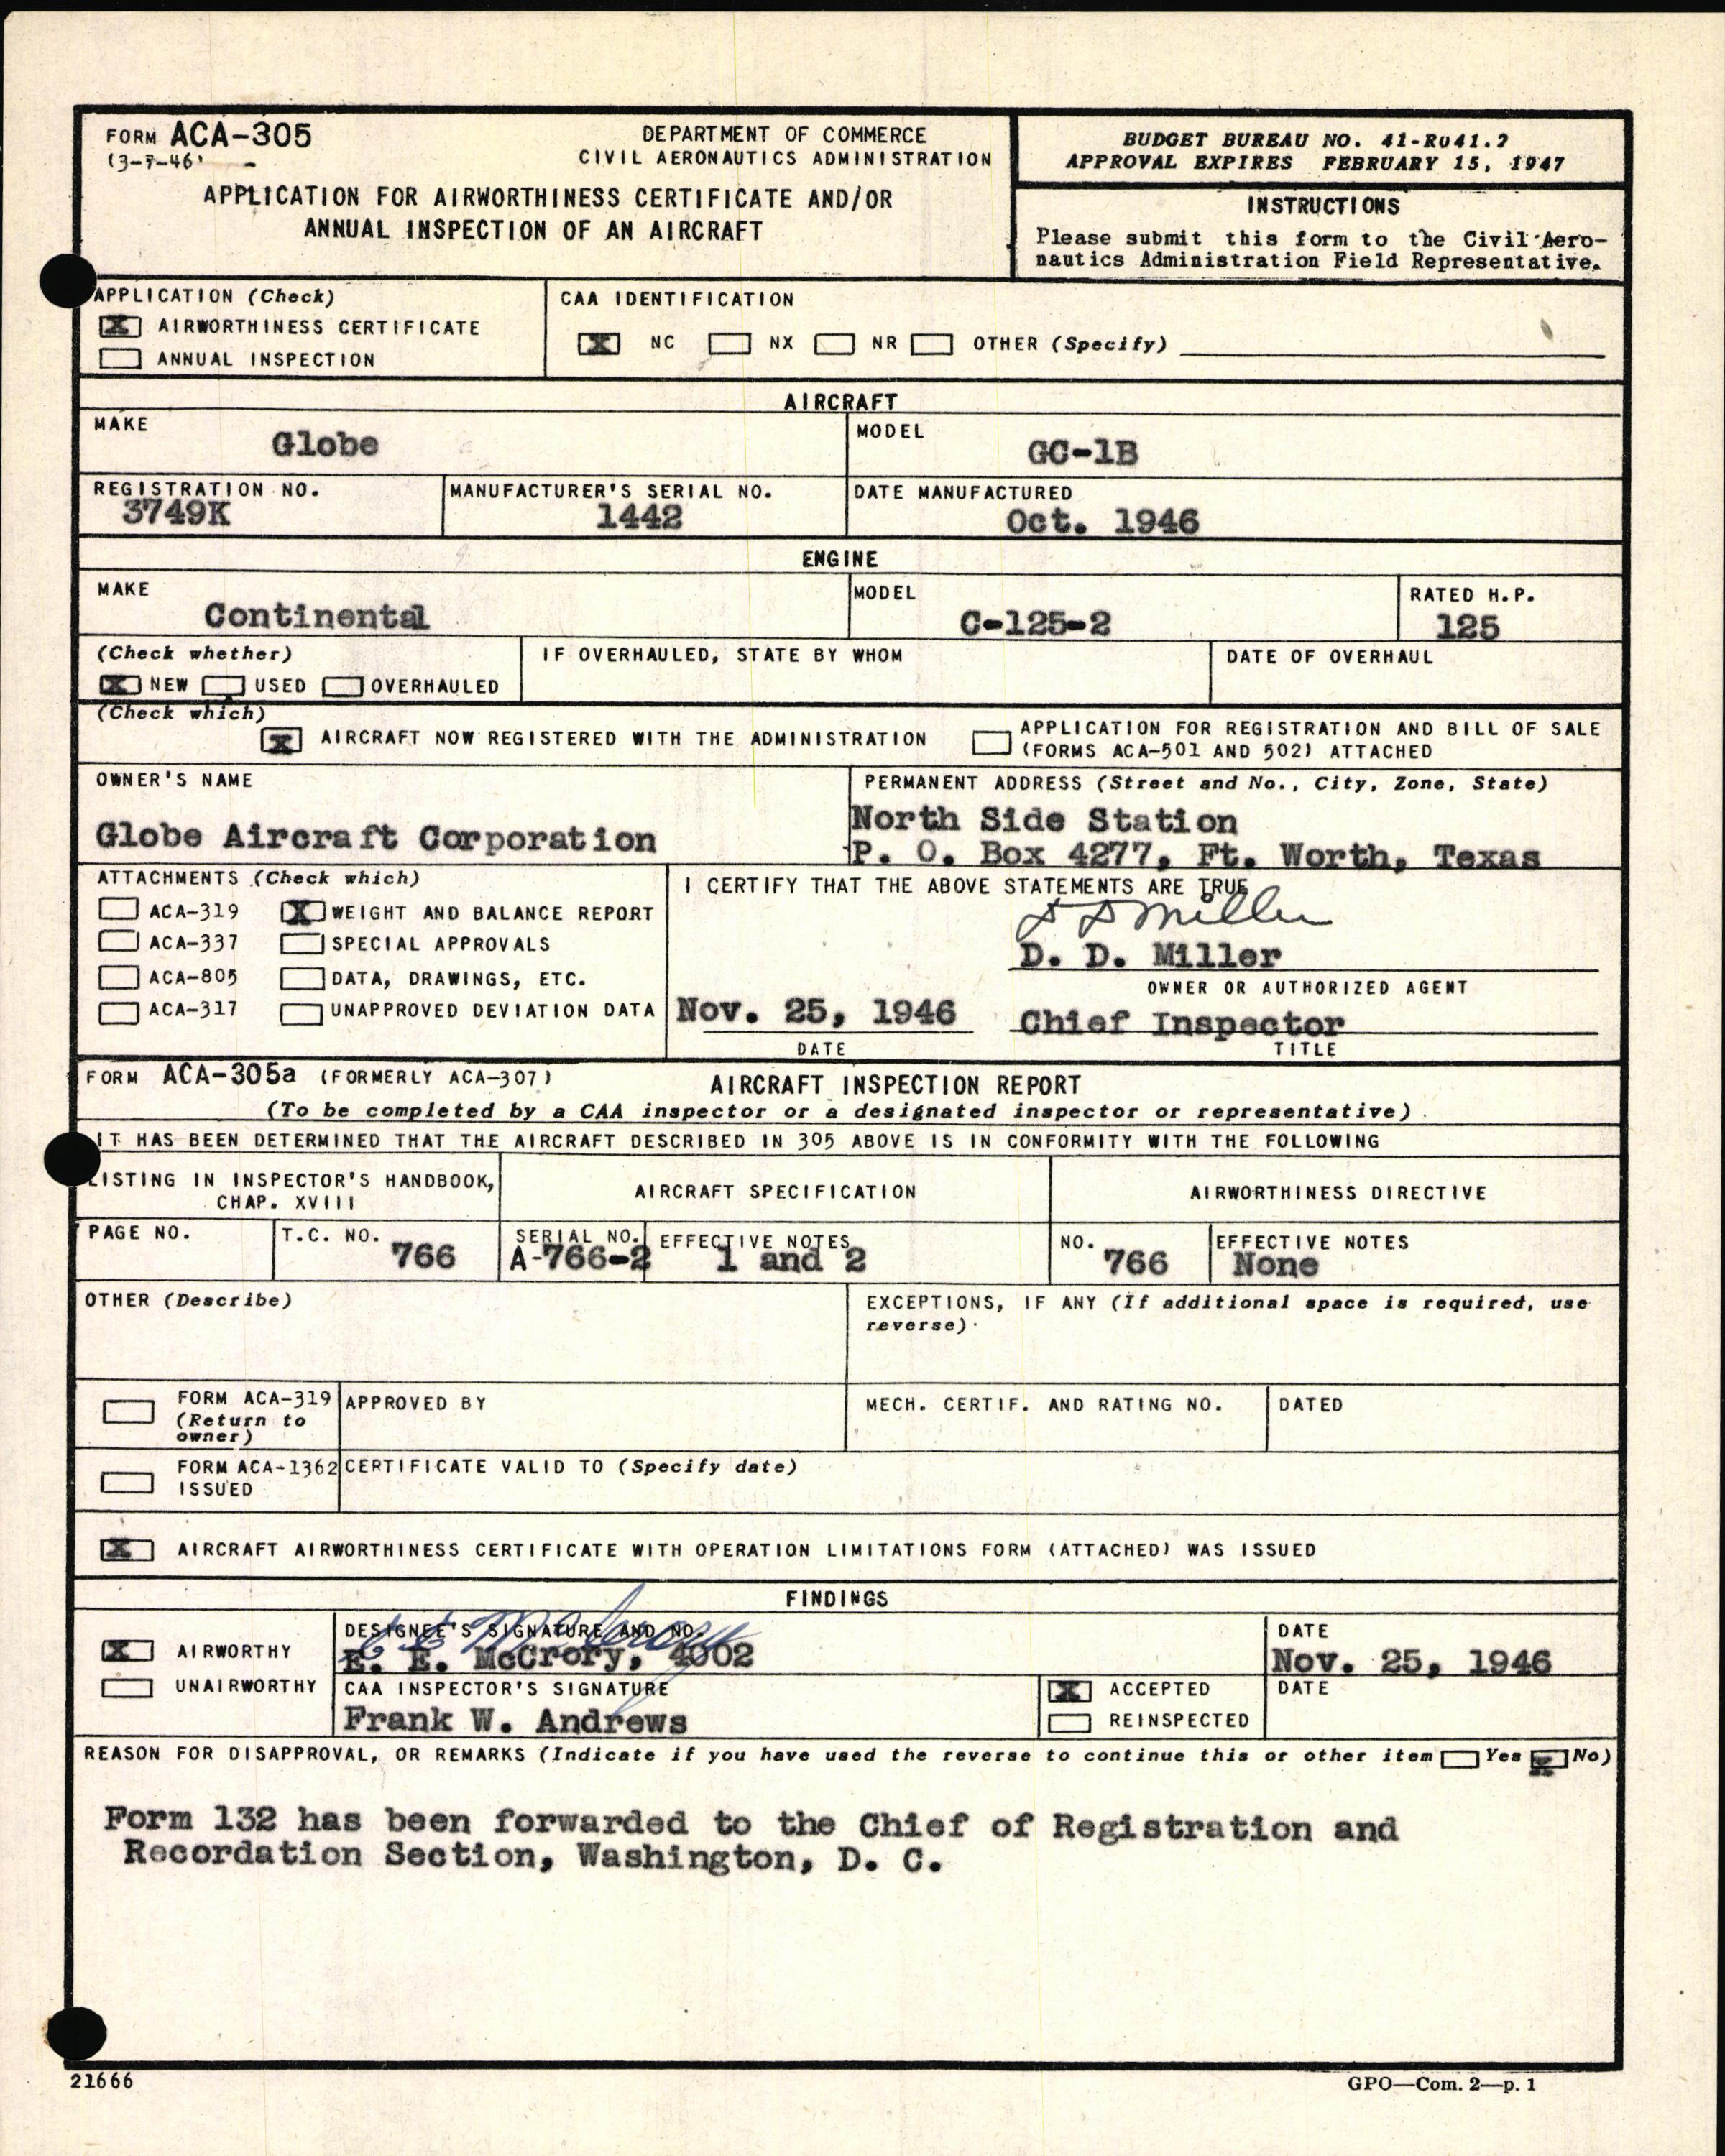 FORM ACA-305
(3-7-46)
DEPARTMENT OF COMMERCE
CIVIL AERONAUTICS ADMINISTRATION
APPLICATION FOR AIRWORTHINESS CERTIFICATE AND/OR
ANNUAL INSPECTION OF AN AIRCRAFT
BUDGET BUREAU NO. 41-R041.2
APPROVAL EXPIRES FEBRUARY 15, 1947
INSTRUCTIONS
Please submit this form to the Civil Aero-
nautics Administration Field Representative.
APPLICATION (Check)
X AIRWORTHINESS CERTIFICATE
ANNUAL INSPECTION
CAA IDENTIFICATION
X NC NX NR OTHER (Specify)
AIRCRAFT
MAKE
Globe
MODEL
GC-1B
REGISTRATION NO.
3749K
MANUFACTURER'S SERIAL NO.
1442
DATE MANUFACTURED
Oct. 1946
ENGINE
MAKE
Continental
MODEL
C-125-2
RATED H.P.
125
(Check whether)
X NEW USED OVERHAULED
IF OVERHAULED, STATE BY WHOM
DATE OF OVERHAUL
(Check which)
X AIRCRAFT NOW REGISTERED WITH THE ADMINISTRATION
APPLICATION FOR REGISTRATION AND BILL OF SALE
(FORMS ACA-501 AND 502) ATTACHED
OWNER'S NAME
Globe Aircraft Corporation
PERMANENT ADDRESS (Street and No., City, Zone, State)
North Side Station
P. O. Box 4277, Ft. Worth, Texas
ATTACHMENTS (Check which)
ACA-319 X WEIGHT AND BALANCE REPORT
ACA-337 SPECIAL APPROVALS
ACA-805 DATA, DRAWINGS, ETC.
ACA-317 UNAPPROVED DEVIATION DATA
I CERTIFY THAT THE ABOVE STATEMENTS ARE TRUE
D D Miller
D. D. Miller
OWNER OR AUTHORIZED AGENT
Nov. 25, 1946 Chief Inspector
DATE TITLE
FORM ACA-305a (FORMERLY ACA-307)
AIRCRAFT INSPECTION REPORT
(To be completed by a CAA inspector or a designated inspector or representative)
IT HAS BEEN DETERMINED THAT THE AIRCRAFT DESCRIBED IN 305 ABOVE IS IN CONFORMITY WITH THE FOLLOWING
LISTING IN INSPECTOR'S HANDBOOK,
CHAP. XVIII
AIRCRAFT SPECIFICATION
AIRWORTHINESS DIRECTIVE
PAGE NO.
T.C. NO.
766
SERIAL NO.
A-766-2
EFFECTIVE NOTES
1 and 2
NO.
766
EFFECTIVE NOTES
None
OTHER (Describe)
EXCEPTIONS, IF ANY (If additional space is required, use
reverse)
FORM ACA-319
(Return to
owner)
APPROVED BY
MECH. CERTIF. AND RATING NO.
DATED
FORM ACA-1362
ISSUED
CERTIFICATE VALID TO (Specify date)
X AIRCRAFT AIRWORTHINESS CERTIFICATE WITH OPERATION LIMITATIONS FORM (ATTACHED) WAS ISSUED
FINDINGS
X AIRWORTHY
UNAIRWORTHY
DESIGNEE'S SIGNATURE AND NO.
E E McCrory
E. E. McCrory, 4002
DATE
Nov. 25, 1946
CAA INSPECTOR'S SIGNATURE
Frank W. Andrews
X ACCEPTED
REINSPECTED
DATE
REASON FOR DISAPPROVAL, OR REMARKS (Indicate if you have used the reverse to continue this or other item Yes X No)
Form 132 has been forwarded to the Chief of Registration and
Recordation Section, Washington, D. C.
21666
GPO—Com. 2—p. 1